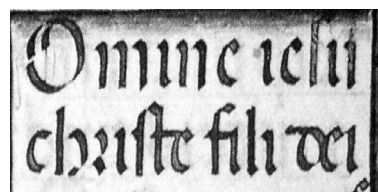 Omine iesu
christe fili dei